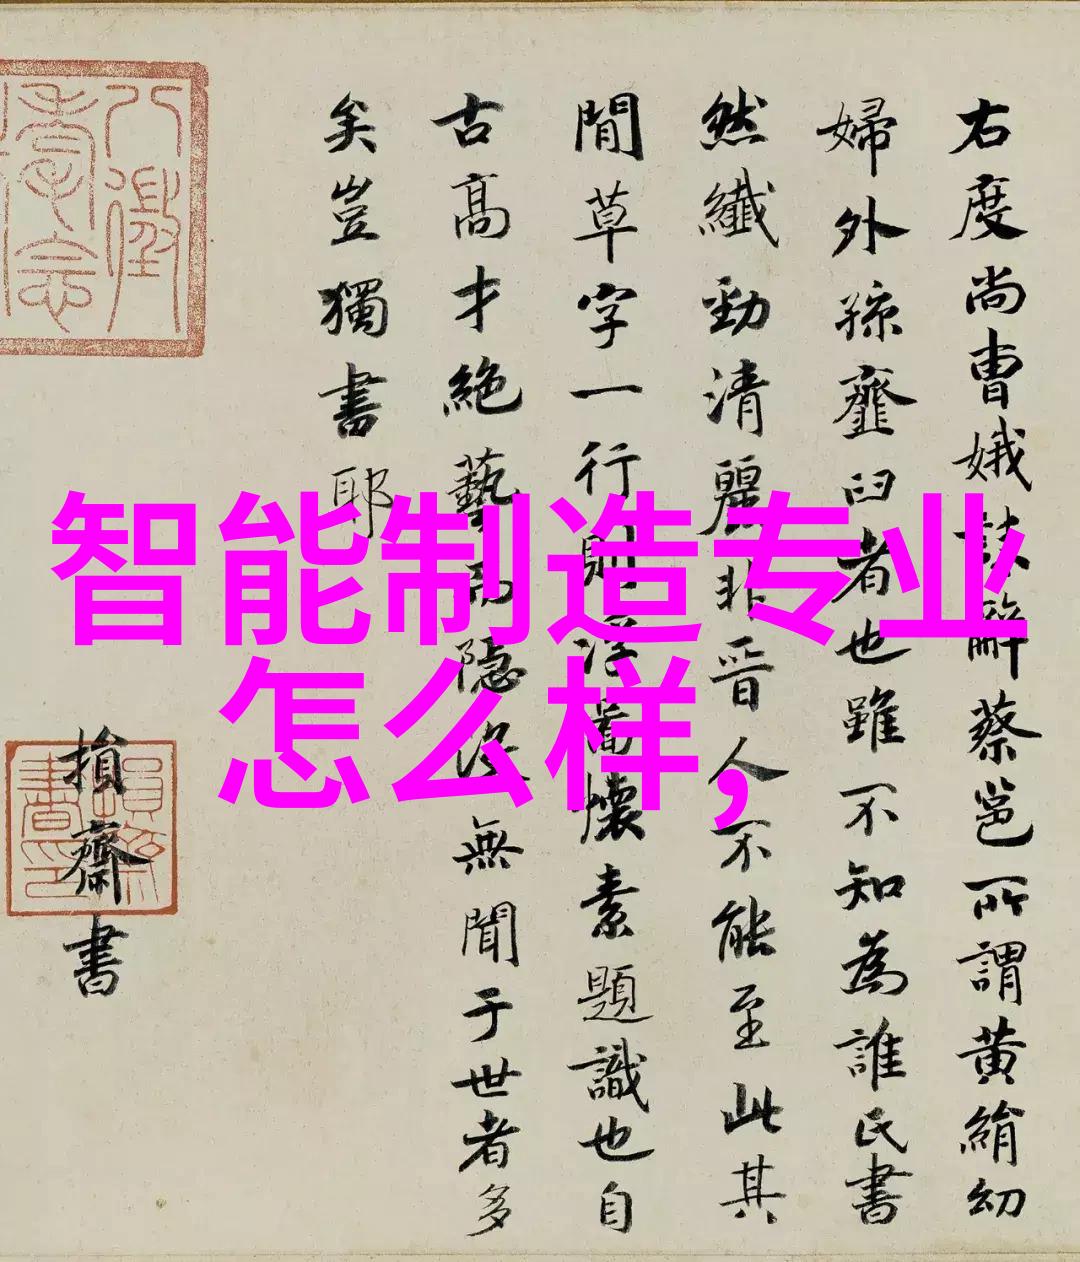 右度尚曹娥誄辭蔡邕所謂黄絹幼
婦外孫虀臼者也雖不知為誰氏書
然纖勁清麗非晉人不能至此其
間草字一行則浮屠懷素題識也自
古高才絶藝而隱没無聞于世者多
矣豈獨書耶
損齋書
智能制造专业
怎么样,